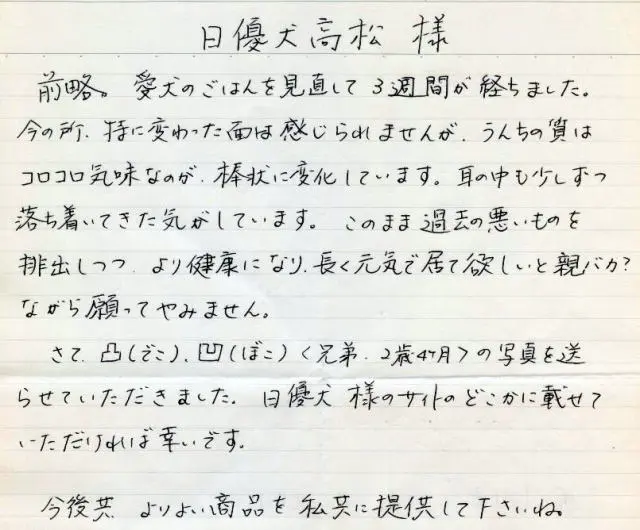 日優犬高松 様
前略。愛犬のごはんを見直して 3週間が経ちました。
今の所、特に変わった面は感じられませんが、うんちの質は
コロコロ気味なのが、棒状に変化しています。耳の中も少しずつ
落ち着いてきた気がしています。このまま過去の悪いものを
排出しつつ、より健康になり、長く元気で居て欲しいと親バカ?
ながら願ってやみません。
さて、凸(でこ)、凹(ぼこ)〈兄弟、2歳4ヶ月〉の写真を送
らせていただきました。日優犬 様のサイトのどこかに載せて
いただければ幸いです。
今後共 よりよい商品を 私共に提供して下さいね。